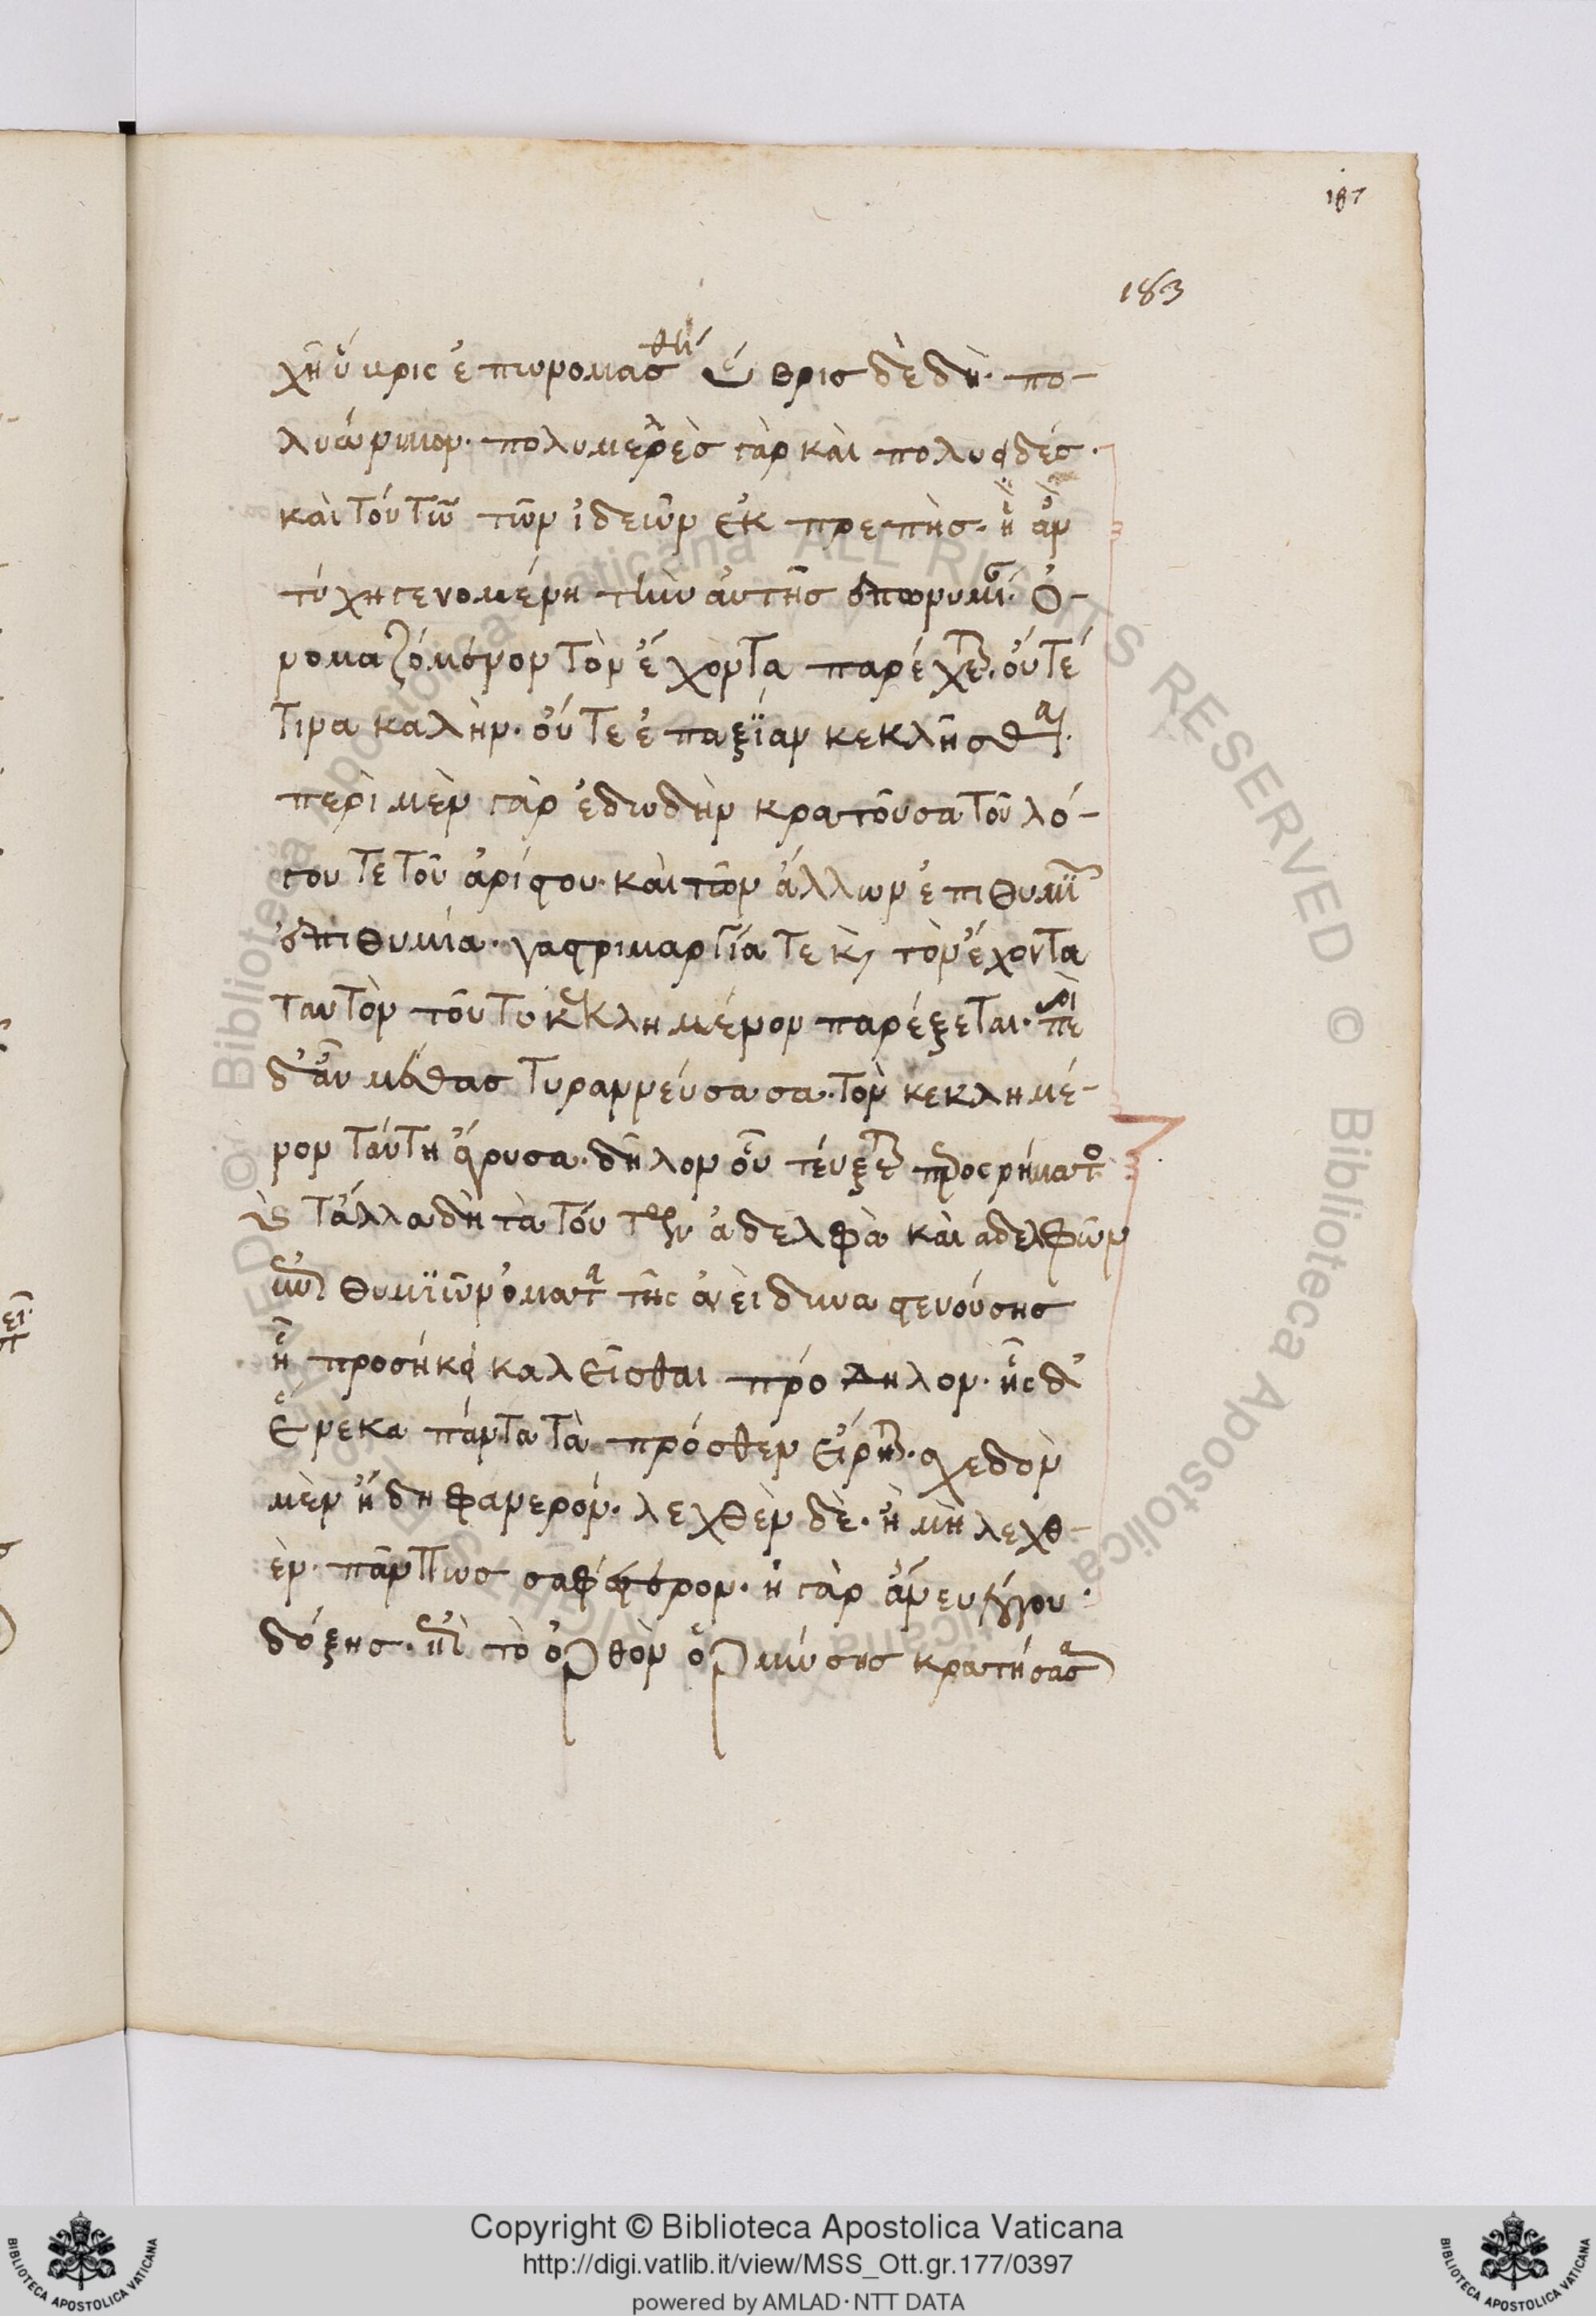 187
183
χῆ ὕβρις ἐπωνομάσθη ὕβρις δὲ δὴ· πο-
λυώνυμον· πολυμελὲς γὰρ καὶ πολυειδές·
καὶ τούτων τῶν ἰδεῶν ἐκπρεπὴς· ἣ ἂν
τύχη γενομένη τὴν αὐτῆς ἐπωνυμίαν· ὀ-
νομαζόμενον τὸν ἔχοντα παρέχεται· οὔτέ
τινα καλὴν· οὔτε ἐπαξίαν κεκλῆσθαι·
περὶ μὲν γὰρ ἐδωδὴν κρατοῦσα τοῦ λό-
γου τε τοῦ ἀρίστου· καὶ τῶν ἄλλων ἐπιθυμιῶν
ἐπιθυμία· γαστριμαργία τε καὶ τὸν ἔχοντα
ταυτὸν τοῦτο κεκλημένον παρέξεται· περὶ
δ' αὖ μέθας τυραννεύσασα· τὸν κεκλημέ-
νον ταύτη ἄγουσα· δῆλον οὗ τεύξεται προσρήματος
καὶ τἄλλα δὴ τὰ τούτων ἀδελφὰ καὶ ἀδελφῶν
ἐπιθυμιῶν ὀνόματα τῆς ἀεὶ δυναστευούσης
ᾗ προσήκει καλεῖσθαι πρόδηλον· ἧς δ'
ἕνεκα πάντα τὰ πρόσθεν εἴρηται· σχεδὸν
μὲν ἤδη φανερόν· λεχθὲν δὲ· ἢ μὴ λεχθ-
ὲν· πάντως σαφέστερον· ἡ γὰρ ἄνευ λόγου
δόξης· ἐπὶ τὸ ὀρθὸν ὁρμώσης κρατήσασα
Copyright © Biblioteca Apostolica Vaticana
http://digi.vatlib.it/view/MSS_Ott.gr.177/0397
powered by AMLAD·NTT DATA